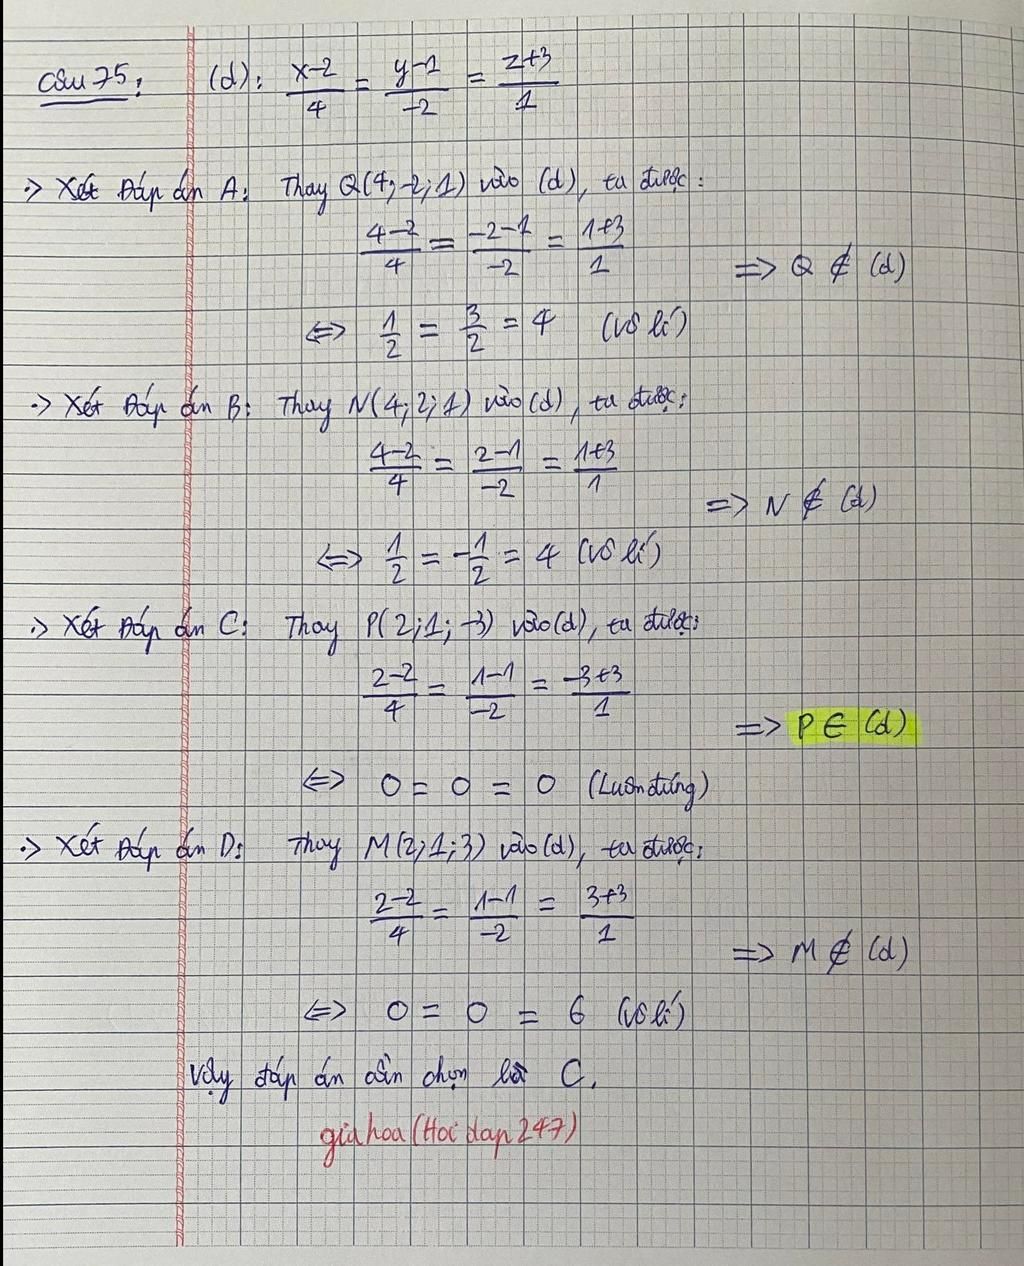 Câu 75: (d): x-2/4 = y-1/-2 = z+3/1
·> Xét Đáp án A: Thay Q(4;-2;1) vào (d), ta được:
4-2/4 = -2-1/-2 = 1+3/1
=> Q ∉ (d)
<=> 1/2 = 3/2 = 4 (vô lí)
·> Xét Đáp án B: Thay N(4;2;1) vào (d), ta được:
4-2/4 = 2-1/-2 = 1+3/1
=> N ∉ (d)
<=> 1/2 = -1/2 = 4 (vô lí)
·> Xét Đáp án C: Thay P(2;1;-3) vào (d), ta được:
2-2/4 = 1-1/-2 = -3+3/1
=> P ∈ (d)
<=> 0 = 0 = 0 (Luôn đúng)
·> Xét Đáp án D: Thay M(2;1;3) vào (d), ta được:
2-2/4 = 1-1/-2 = 3+3/1
=> M ∉ (d)
<=> 0 = 0 = 6 (vô lí)
Vậy đáp án cần chọn là C.
giahoa (Hoidap247)